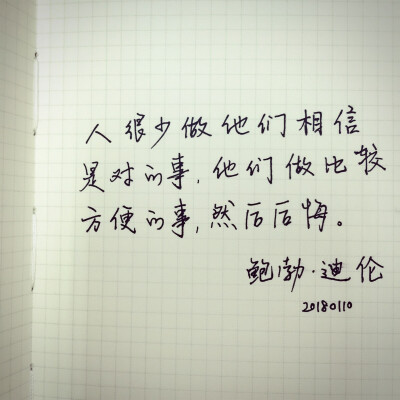 人很少做他们相信
是对的事,他们做比较
方便的事,然后后悔。
鲍勃·迪伦
20180110